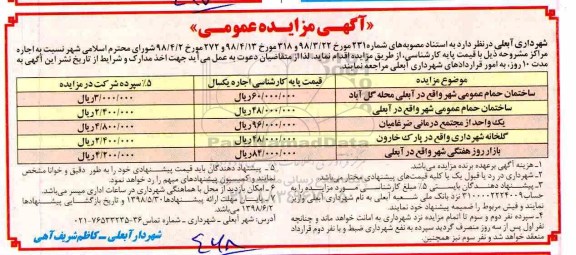 «آگهی مزایده عمومی»
شهرداری آبعلی درنظر دارد به استناد مصوبه‌های شماره ۲۳۱ مورخ ۹۸/۳/۲۲ و ۳۱۸ مورخ ۹۸/۴/۱۳ و ۲۷۲ مورخ ۹۸/۴/۲ شورای محترم اسلامی شهر نسبت به اجاره
مراکز مشروحه ذیل با قیمت پایه کارشناسی، از طریق مزایده اقدام نماید. لذا از متقاضیان دعوت به عمل می‌آید جهت اخذ مدارک و شرایط از تاریخ نشر این آگهی به
مدت ۱۰ روز، به امور قراردادهای شهرداری آبعلی مراجعه نمایند.
موضوع مزایده قیمت پایه کارشناسی اجاره یکسال ۵٪ سپرده شرکت در مزایده
ساختمان حمام عمومی شهر واقع در آبعلی محله گل آباد ۶۰/۰۰۰/۰۰۰ریال ۳/۰۰۰/۰۰۰ریال
ساختمان حمام عمومی شهر واقع در آبعلی ۴۸/۰۰۰/۰۰۰ریال ۲/۴۰۰/۰۰۰ریال
یک واحد از مجتمع درمانی ضرغامیان ۹۶/۰۰۰/۰۰۰ریال ۴/۸۰۰/۰۰۰ریال
گلخانه شهرداری واقع در پارک خارون ۴۸/۰۰۰/۰۰۰ریال ۲/۴۰۰/۰۰۰ریال
بازار روز هفتگی شهر واقع در آبعلی ۸۴/۰۰۰/۰۰۰ریال ۴/۲۰۰/۰۰۰ریال
۱- هزینه آگهی برعهده برنده مزایده می‌باشد.
۲- شهرداری در رد یا قبول یک یا کلیه قیمت‌های پیشنهادی مختار می‌باشد.
۳- پیشنهاد دهندگان بایستی ۵٪ مبلغ کارشناسی مورد مزایده را به
حساب نزد بانک ملی شعبه آبعلی به نام شهرداری آبعلی واریز
نمایند و فیش مربوط را ضمیمه پیشنهاد خود نمایند.
۴- سپرده نفر دوم و سوم تا اتمام مزایده نزد شهرداری به امانت خواهد ماند و چنانچه
نفر اول پس از سه روز منصرف گردید سپرده به نفع شهرداری ضبط و با نفر دوم قرارداد
منعقد خواهد شد و نفر سوم نیز همچنین.
۵- پیشنهاد دهندگان باید قیمت پیشنهادی خود را به طور دقیق و خوانا مشخص
نمایند و کمیسیون پیشنهادهای مبهم را رد خواهد نمود.
۶- امکان بازدید از محل با هماهنگی شهرداری در ساعات اداری میسر می‌باشد.
۷- پایان مهلت ارائه پیشنهادها ۱۳۹۸/۵/۳۰ و تاریخ بازگشایی پیشنهادها
۱۳۹۸/۶/۲ می‌باشد.
آدرس: شهر آبعلی - شهرداری - شماره تماس ۳۶-۰۲۱-۷۶۵۳۲۲۳۵
شهردار آبعلی – کاظم شریف آهی